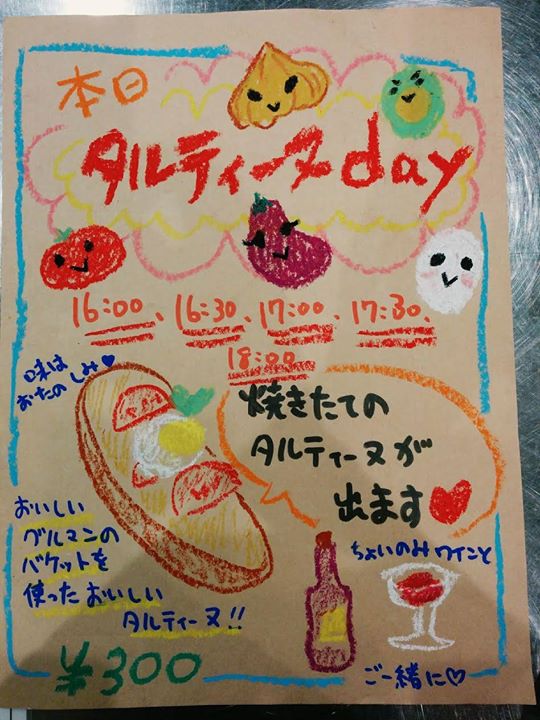 本日
タルティーヌday
16:00、16:30、17:00、17:30、
18:00
味は
おたのしみ♥
焼きたての
タルティーヌが
出ます♥
おいしい
グルマンの
バケットを
使ったおいしい
タルティーヌ!!
¥300
ちょいのみワインと
ご一緒に♡